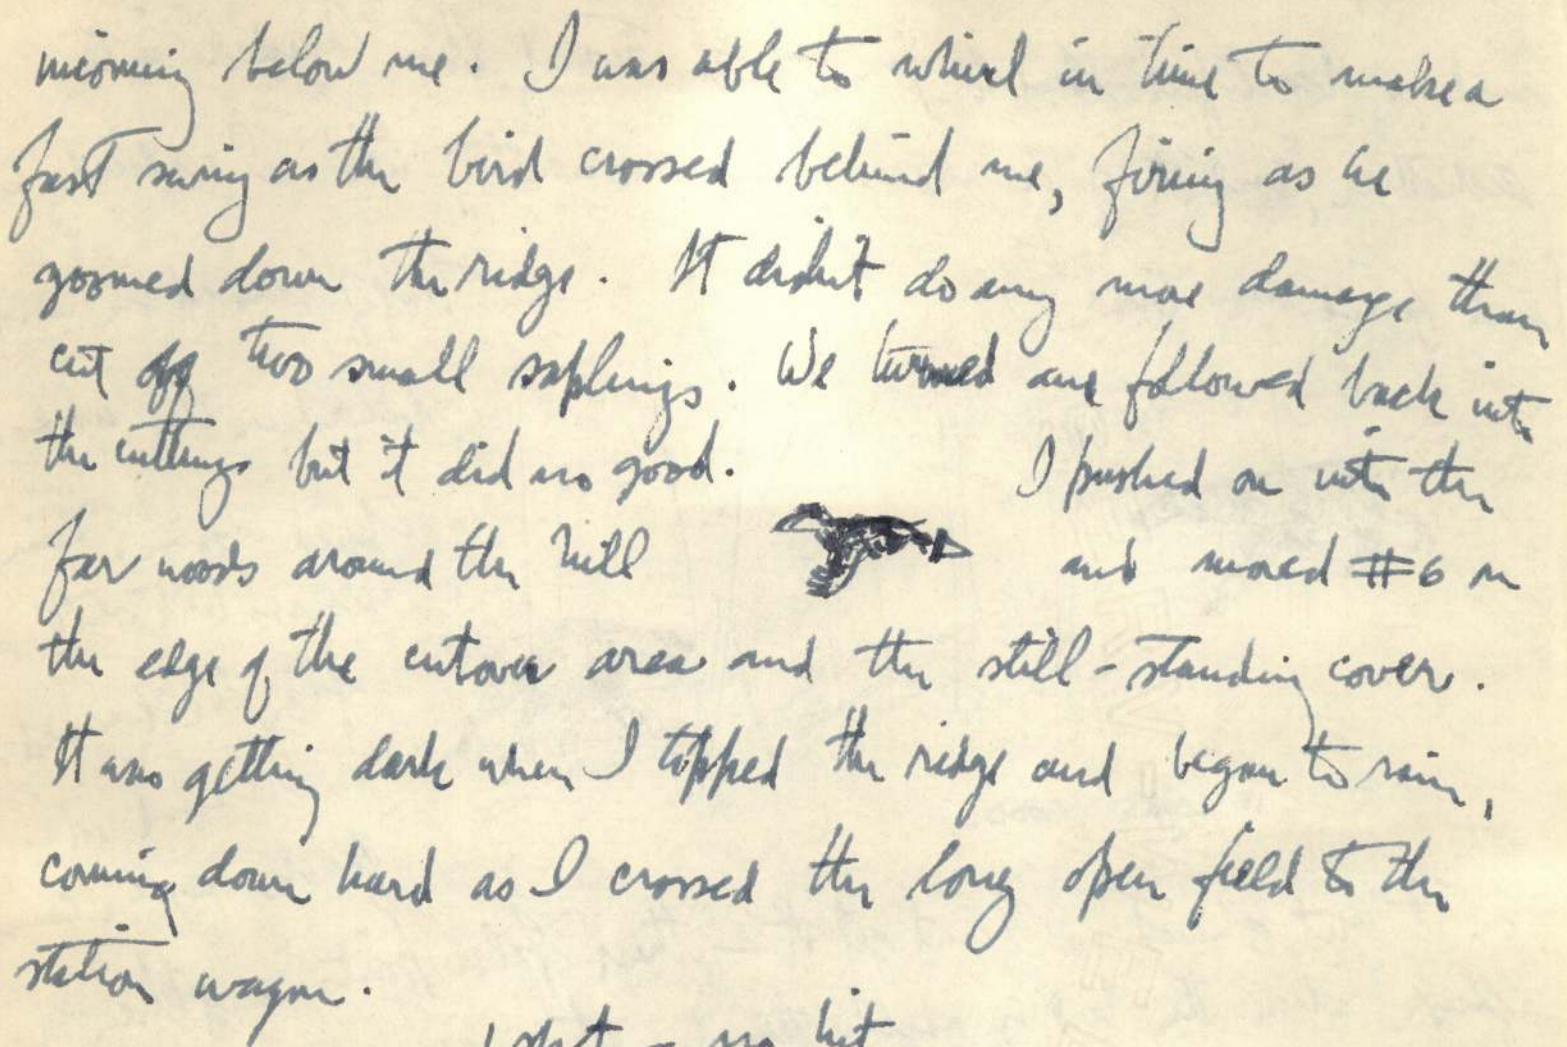 morning below me. I was able to whirl in time to make a
fast swing as the bird crossed behind me, firing as he
zoomed down the ridge. It didn't do any more damage than
cut off two small saplings. We turned and followed back into
the cuttings but it did no good. I pushed on into the
far woods around the hill and moved #6 on
the edge of the cutover area and the still-standing cover.
It was getting dark when I topped the ridge and began to rain,
coming down hard as I crossed the long open field to the
station wagon.
1 shot - no hit